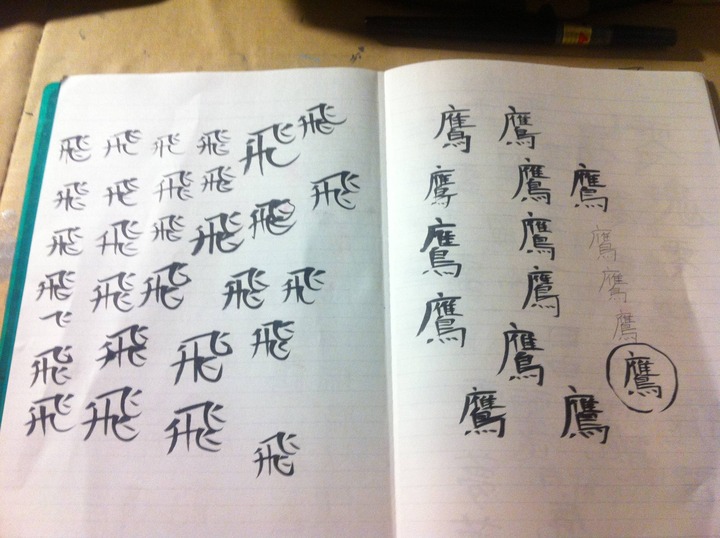 飛 飛 飛 飛 飛 飛
飛 飛 飛 飛 飛
飛 飛 飛 飛 飛
飛 飛 飛 飛 飛
飛 飛 飛 飛
飛 飛 飛 飛
鷹 鷹
鷹 鷹 鷹
鷹 鷹 鷹
鷹 鷹
鷹 鷹
鷹 鷹
鷹 鷹